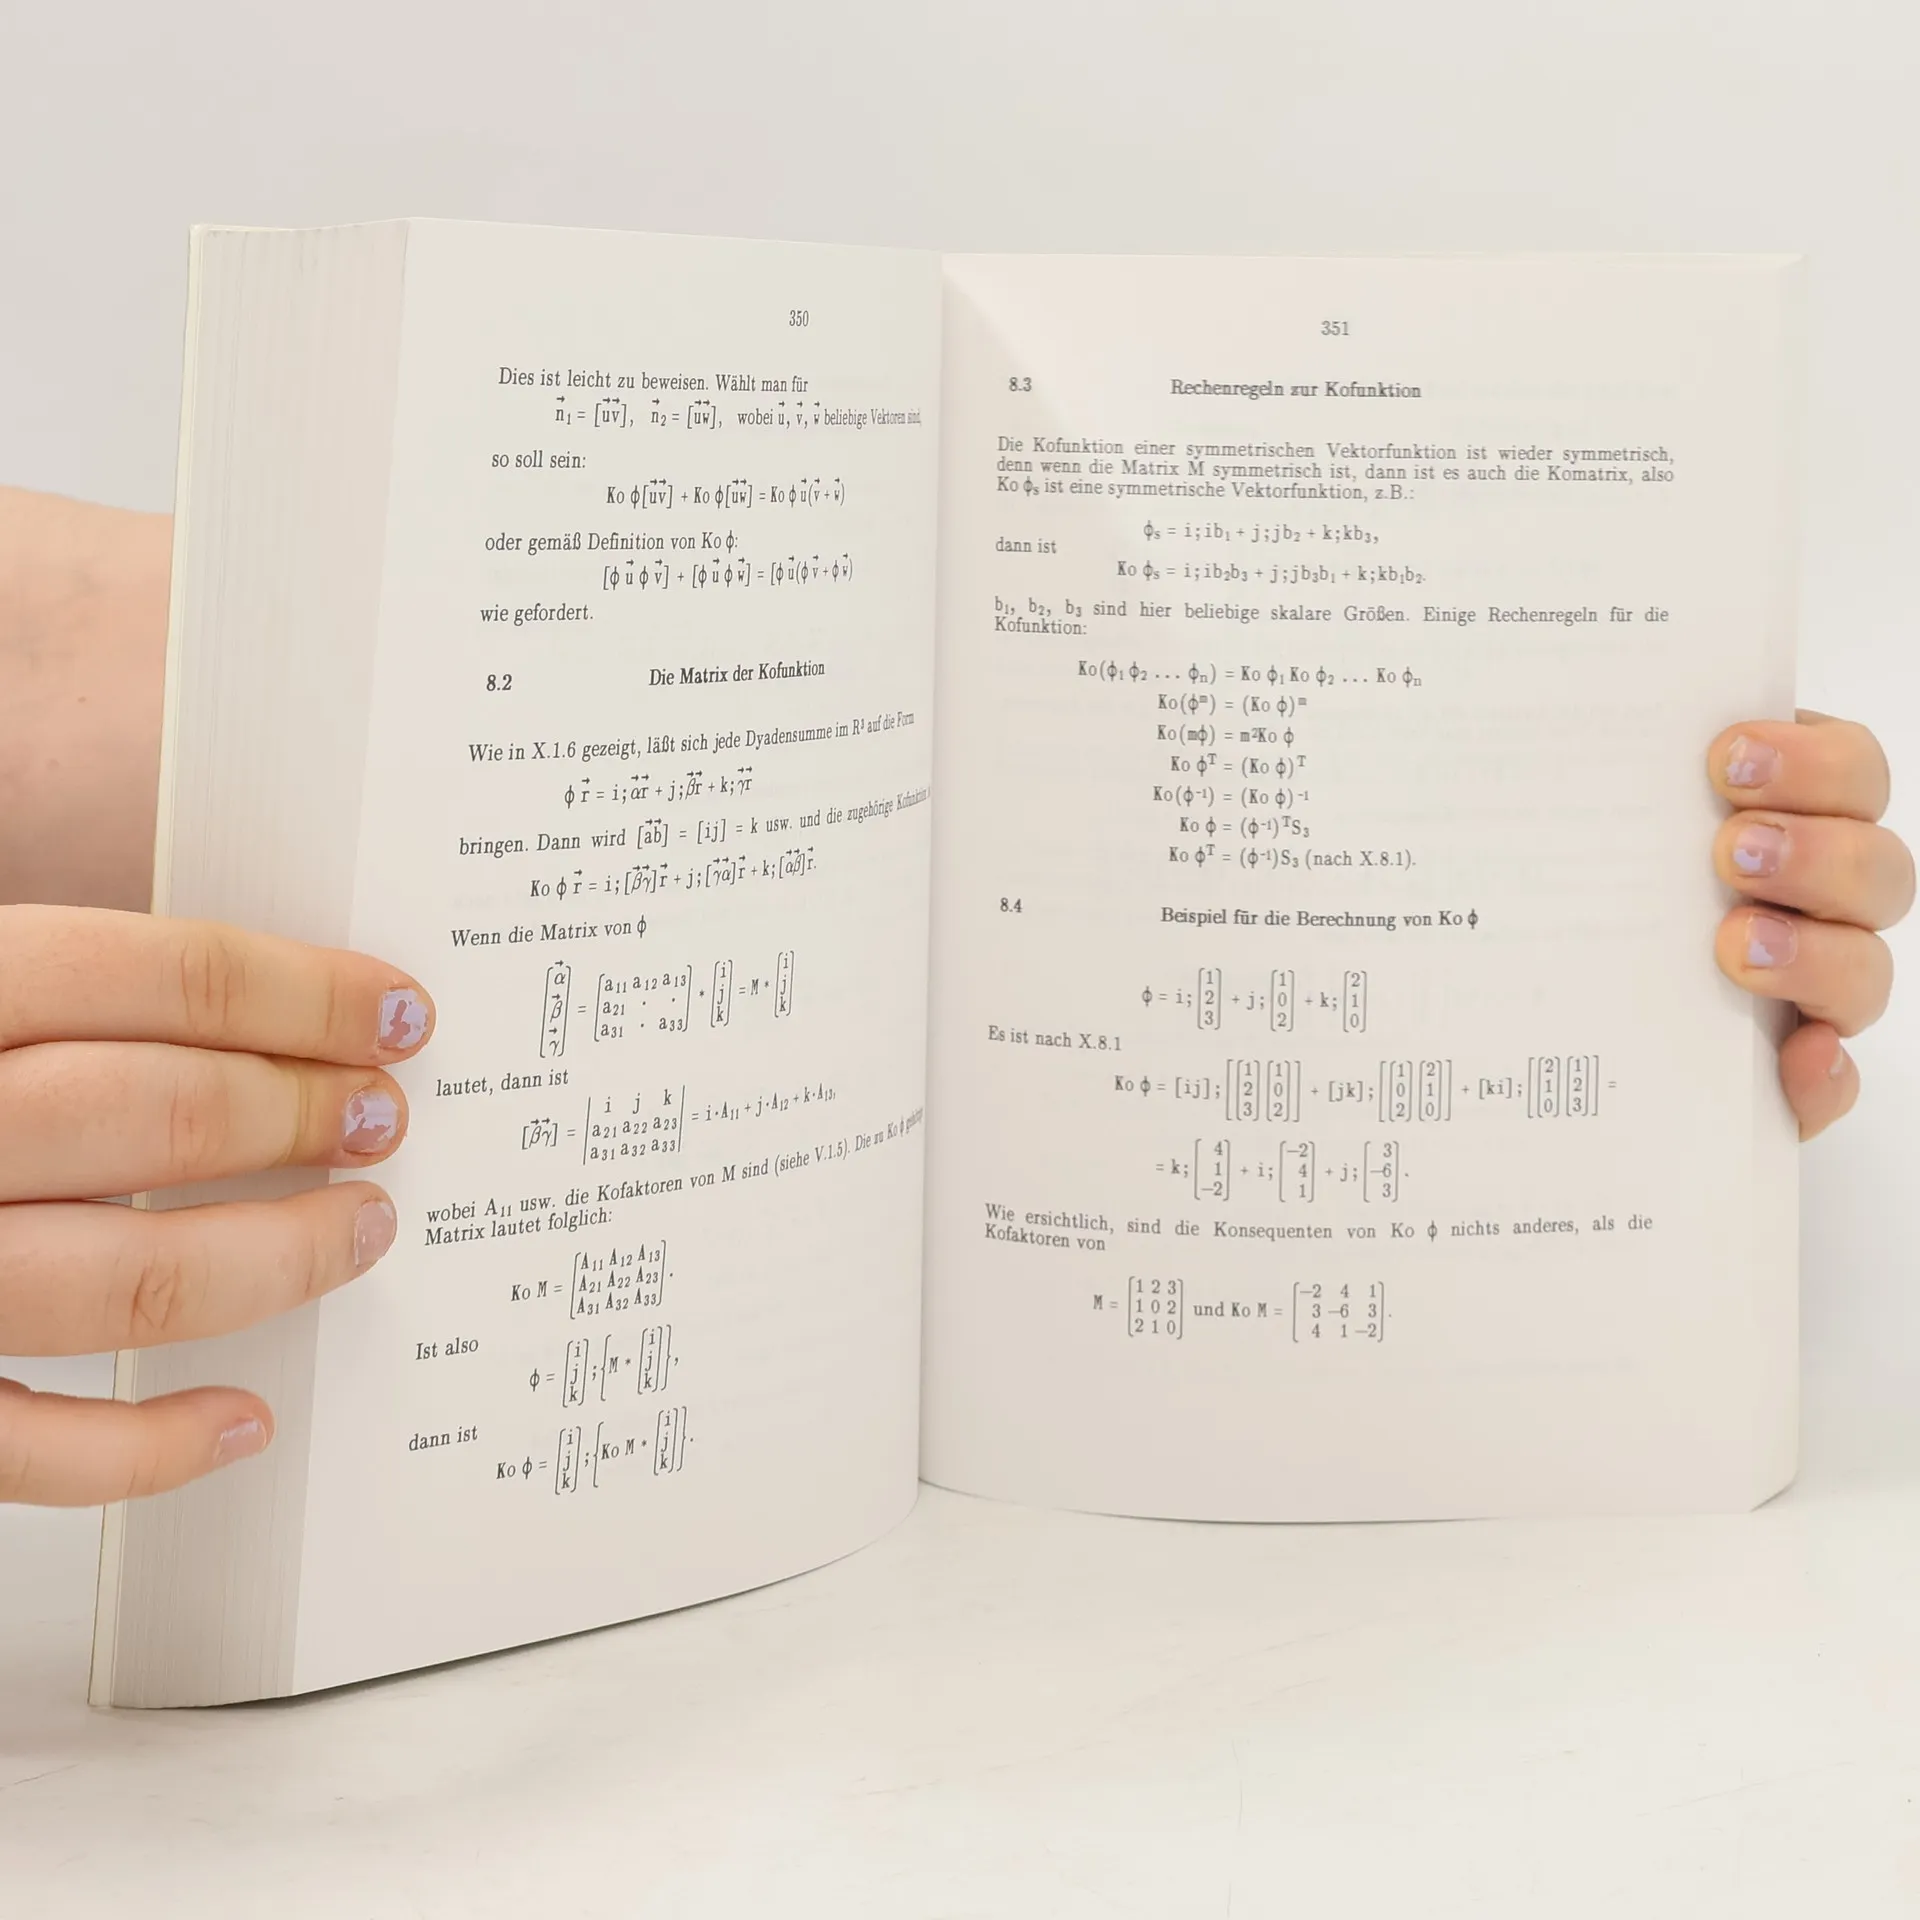 350
Dies ist leicht zu beweisen. Wählt man für
n⃗₁ = [u⃗v⃗], n⃗₂ = [u⃗w⃗], wobei u⃗, v⃗, w⃗ beliebige Vektoren sind,
so soll sein:
Ko ϕ[u⃗v⃗] + Ko ϕ[u⃗w⃗] = Ko ϕ u⃗(v⃗ + w⃗)
oder gemäß Definition von Ko ϕ:
[ϕ u⃗ ϕ v⃗] + [ϕ u⃗ ϕ w⃗] = [ϕ u⃗(ϕ v⃗ + ϕ w⃗)
wie gefordert.
8.2 Die Matrix der Kofunktion
Wie in X.1.6 gezeigt, läßt sich jede Dyadensumme im R³ auf die Form
ϕ r⃗ = i; α⃗r⃗ + j; β⃗r⃗ + k; γ⃗r⃗
bringen. Dann wird [a⃗b⃗] = [ij] = k usw. und die zugehörige Kofunktion
Ko ϕ r⃗ = i; [β⃗γ⃗]r⃗ + j; [γ⃗α⃗]r⃗ + k; [α⃗β⃗]r⃗.
Wenn die Matrix von ϕ
[α⃗ β⃗ γ⃗] = [a₁₁ a₁₂ a₁₃ a₂₁ · · a₃₁ · a₃₃] * [i j k] = M * [i j k]
lautet, dann ist
[β⃗γ⃗] = | i j k a₂₁ a₂₂ a₂₃ a₃₁ a₃₂ a₃₃ | = i·A₁₁ + j·A₁₂ + k·A₁₃,
wobei A₁₁ usw. die Kofaktoren von M sind (siehe V.1.5). Die zu Ko ϕ
Matrix lautet folglich:
Ko M = [A₁₁ A₁₂ A₁₃ A₂₁ A₂₂ A₂₃ A₃₁ A₃₂ A₃₃].
Ist also
ϕ = [i j k]; {M * [i j k]},
dann ist
Ko ϕ = [i j k]; {Ko M * [i j k]}.
351
8.3 Rechenregeln zur Kofunktion
Die Kofunktion einer symmetrischen Vektorfunktion ist wieder symmetrisch,
denn wenn die Matrix M symmetrisch ist, dann ist es auch die Komatrix, also
Ko ϕₛ ist eine symmetrische Vektorfunktion, z.B.:
ϕₛ = i; ib₁ + j; jb₂ + k; kb₃,
dann ist
Ko ϕₛ = i; ib₂b₃ + j; jb₃b₁ + k; kb₁b₂.
b₁, b₂, b₃ sind hier beliebige skalare Größen. Einige Rechenregeln für die
Kofunktion:
Ko(ϕ₁ ϕ₂ ... ϕₙ) = Ko ϕ₁ Ko ϕ₂ ... Ko ϕₙ
Ko(ϕᵐ) = (Ko ϕ)ᵐ
Ko(mϕ) = m²Ko ϕ
Ko ϕᵀ = (Ko ϕ)ᵀ
Ko(ϕ⁻¹) = (Ko ϕ)⁻¹
Ko ϕ = (ϕ⁻¹)ᵀS₃
Ko ϕᵀ = (ϕ⁻¹)S₃ (nach X.8.1).
8.4 Beispiel für die Berechnung von Ko ϕ
ϕ = i; [1 2 3] + j; [1 0 2] + k; [2 1 0]
Es ist nach X.8.1
Ko ϕ = [ij]; [[1 2 3] [1 0 2]] + [jk]; [[1 0 2] [2 1 0]] + [ki]; [[2 1 0] [1 2 3]] =
= k; [4 1 −2] + i; [−2 4 1] + j; [3 −6 3].
Wie ersichtlich, sind die Konsequenten von Ko ϕ nichts anderes, als die
Kofaktoren von
M = [1 2 3 1 0 2 2 1 0] und Ko M = [−2 4 1 3 −6 3 4 1 −2].